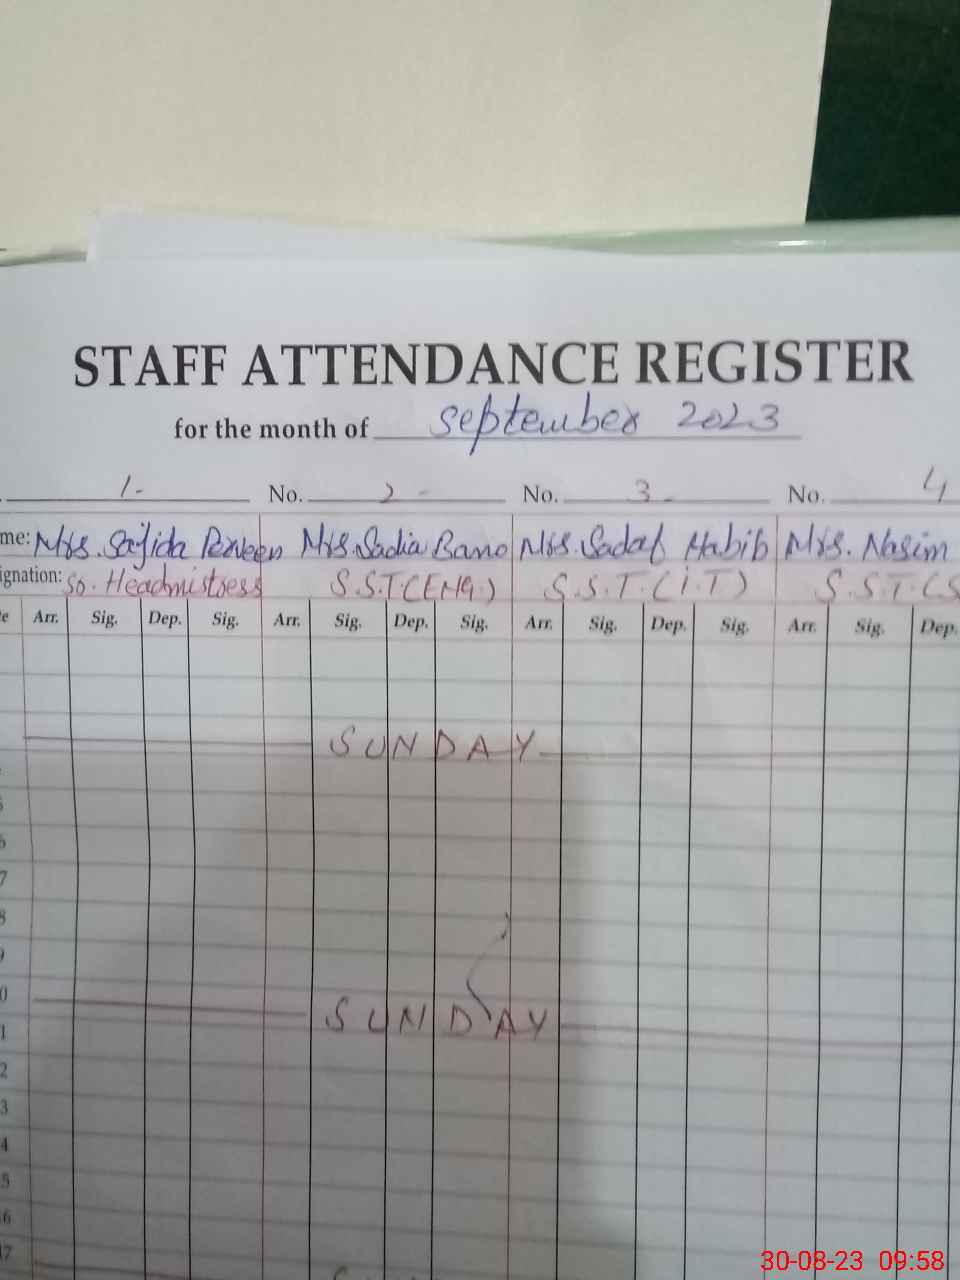 STAFF ATTENDANCE REGISTER
for the month of September 2023
1- No. 2- No. 3- No. 4
me: Mrs. Sajida Perveen Mrs. Sadia Bano Mrs. Sadaf Habib Mrs. Nasim
ignation: Sr. Headmistress S.S.T (ENG.) S.S.T. (I.T) S.S.T. (S
e Arr. Sig. Dep. Sig. Arr. Sig. Dep. Sig. Arr. Sig. Dep. Sig. Arr. Sig. Dep.
SUNDAY
5
6
7
8
9
0 SUNDAY
1
2
3
4
5
6
17
30-08-23 09:58